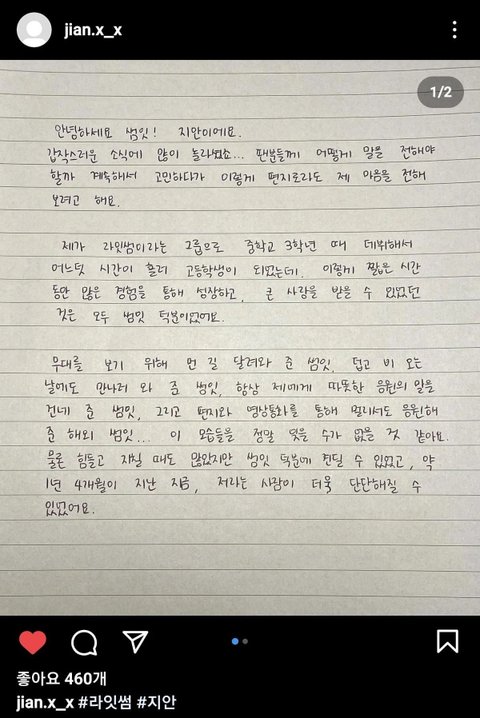 jian.x_x
1/2
안녕하세요 썸잇! 지안이에요.
갑작스러운 소식에 많이 놀라셨죠... 팬분들께 어떻게 말을 전해야
할까 계속해서 고민하다가 이렇게 편지로라도 제 마음을 전해
보려고 해요.
제가 라잇썸이라는 그룹으로 중학교 3학년 때 데뷔해서
어느덧 시간이 흘러 고등학생이 되었는데, 이렇게 짧은 시간
동안 많은 경험을 통해 성장하고, 큰 사랑을 받을 수 있었던
것은 모두 썸잇 덕분이었어요.
무대를 보기 위해 먼 길 달려와 준 썸잇, 덥고 비 오는
날에도 만나러 와 준 썸잇, 항상 제에게 따뜻한 응원의 말을
건네 준 썸잇, 그리고 편지와 영상통화를 통해 멀리서도 응원해
준 해외 썸잇... 이 모습들을 정말 잊을 수가 없을 것 같아요.
물론 힘들고 지칠 때도 많았지만 썸잇 덕분에 견딜 수 있었고, 약
1년 4개월이 지난 지금, 저라는 사람이 더욱 단단해질 수
있었어요.
좋아요 460개
jian.x_x #라잇썸 #지안